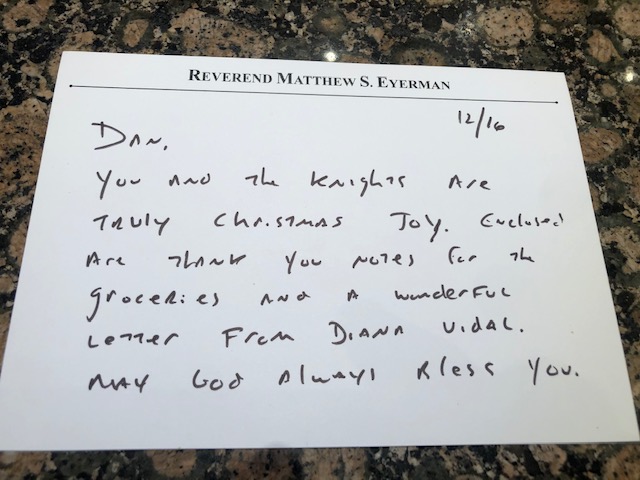 REVEREND MATTHEW S. EYERMAN
12/16
DAN,
You AND The Knights Are
TRULY Christmas Joy. Enclosed
Are Thank You Notes for the
groceries AND A wonderful
Letter From Diana Vidal.
MAY God Always Bless You.